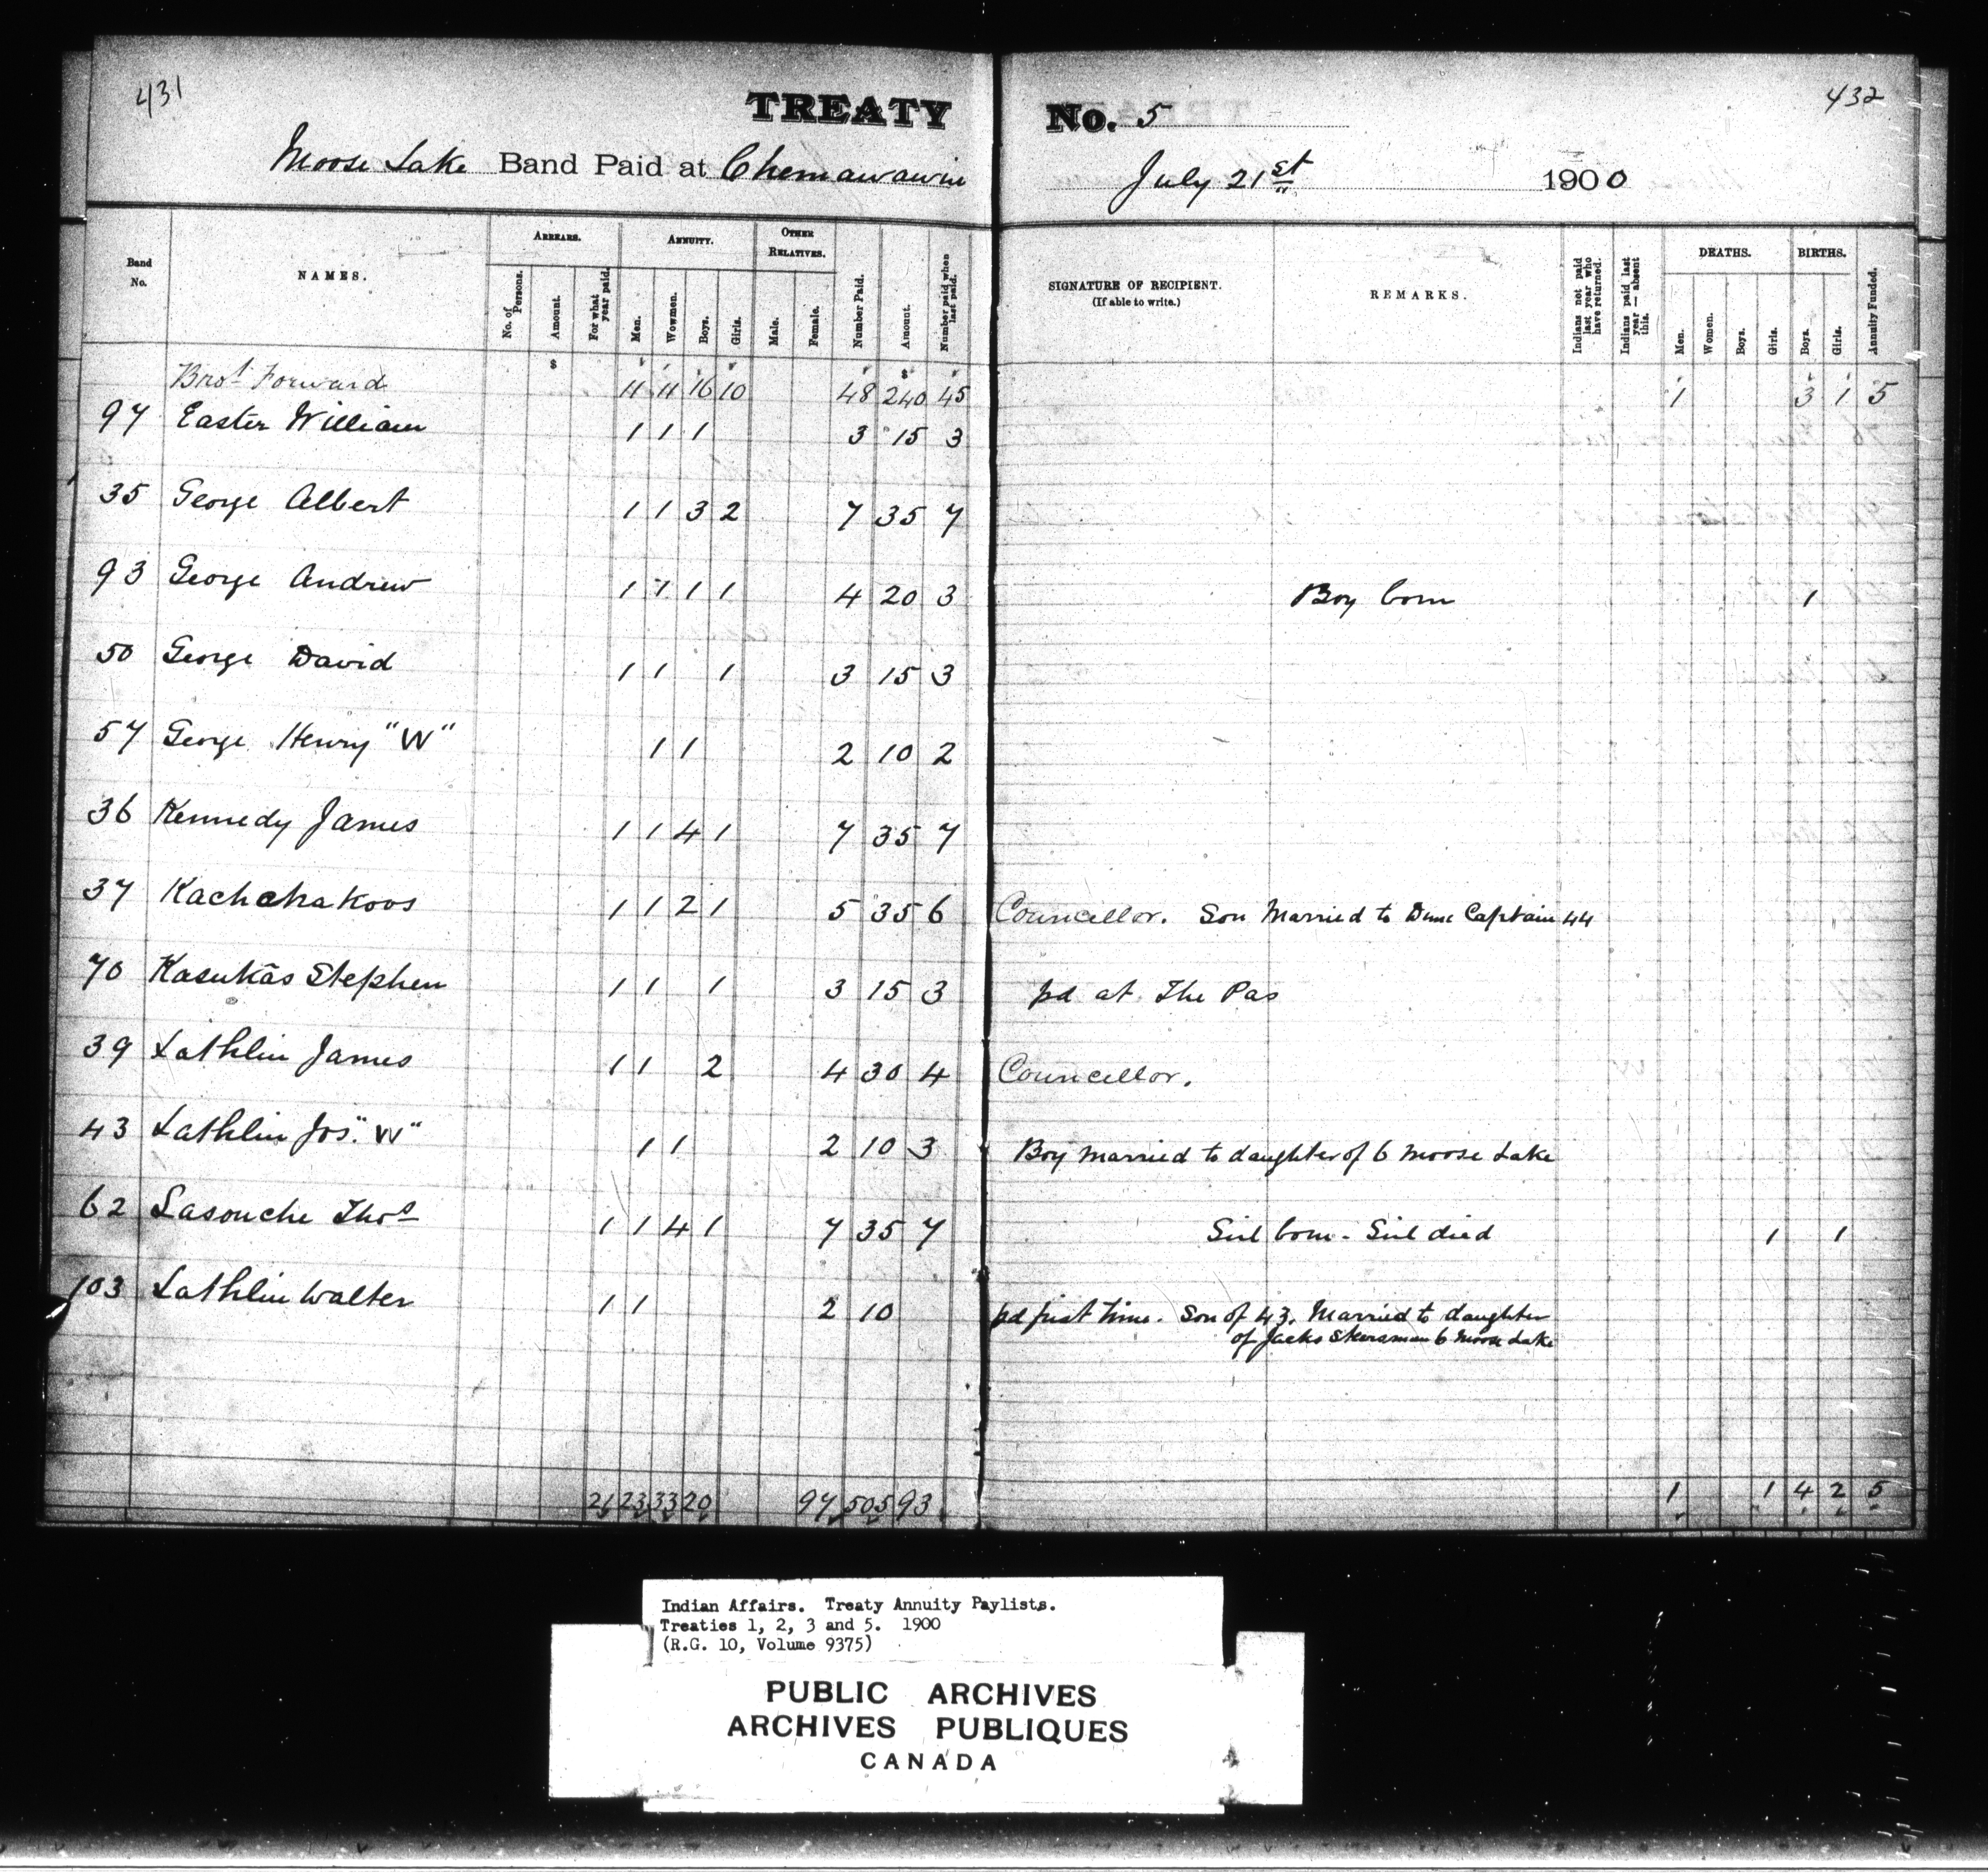 431
TREATY No. 5
432
Moose Lake Band Paid at Chemawawin July 21st 1900
Band No. NAMES. ARREARS. ANNUITY. OTHER RELATIVES. SIGNATURE OF RECIPIENT. (If able to write.) REMARKS. DEATHS. BIRTHS.
No. of Persons. Amount. For what year paid. Men. Wowmen. Boys. Girls. Male. Female. Number Paid. Amount. Number paid when last paid. Indians not paid last year who have returned. Indians paid last year — absent this. Men. Women. Boys. Girls. Boys. Girls. Annuity Funded.
$ $
Brot Forward 11 11 16 10 48 240 45 1 3 1 5
97 Easter William 1 1 1 3 15 3
35 George Albert 1 1 3 2 7 35 7
93 George Andrew 1 1 1 1 4 20 3 Boy born 1
50 George David 1 1 1 3 15 3
57 George Henry "W" 1 1 2 10 2
36 Kennedy James 1 1 4 1 7 35 7
37 Kachchakoos 1 1 2 1 5 35 6 Councellor. Son Married to Captain 44
70 Kasukās Stephen 1 1 1 3 15 3 pd at The Pas
39 Lathlin James 1 1 2 4 30 4 Councellor.
43 Lathlin Jos. "W" 1 1 2 10 3 Boy married to daughter of 6 Moose Lake
62 Lasouche Thos 1 1 4 1 7 35 7 Girl born - Girl died 1 1
103 Lathlin Walter 1 1 2 10 pd first time. Son of 43. Married to daughter
of Jacks 6 Moose Lake
21 23 33 20 97 505 93 1 1 4 2 5
Indian Affairs. Treaty Annuity Paylists.
Treaties 1, 2, 3 and 5. 1900
(R.G. 10, Volume 9375)
PUBLIC ARCHIVES
ARCHIVES PUBLIQUES
CANADA